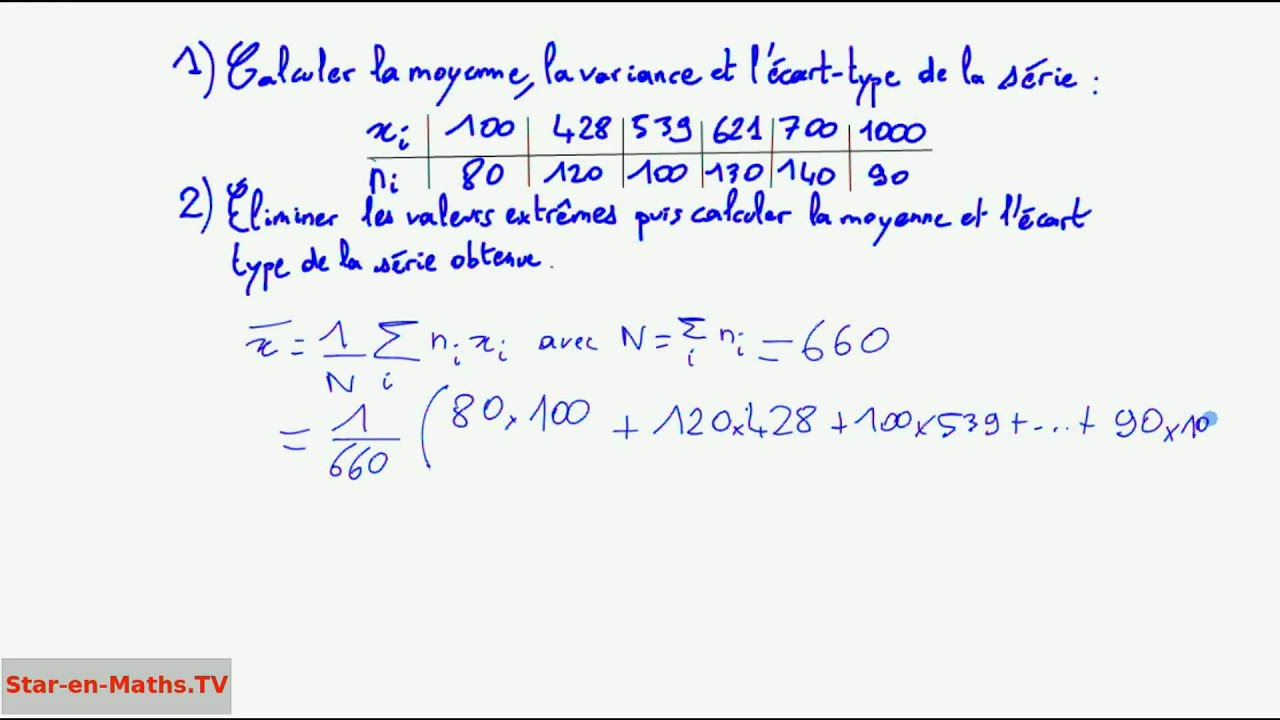 1) Calculer la moyenne, la variance et l'écart-type de la série :
xi | 100 | 428 | 539 | 621 | 700 | 1000
ni | 80 | 120 | 100 | 130 | 140 | 90
2) Éliminer les valeurs extrêmes puis calculer la moyenne et l'écart
type de la série obtenue.
x̄ = 1/N Σi ni xi avec N = Σi ni = 660
= 1/660 ( 80 x 100 + 120 x 428 + 100 x 539 + ... + 90 x 10
Star-en-Maths.TV